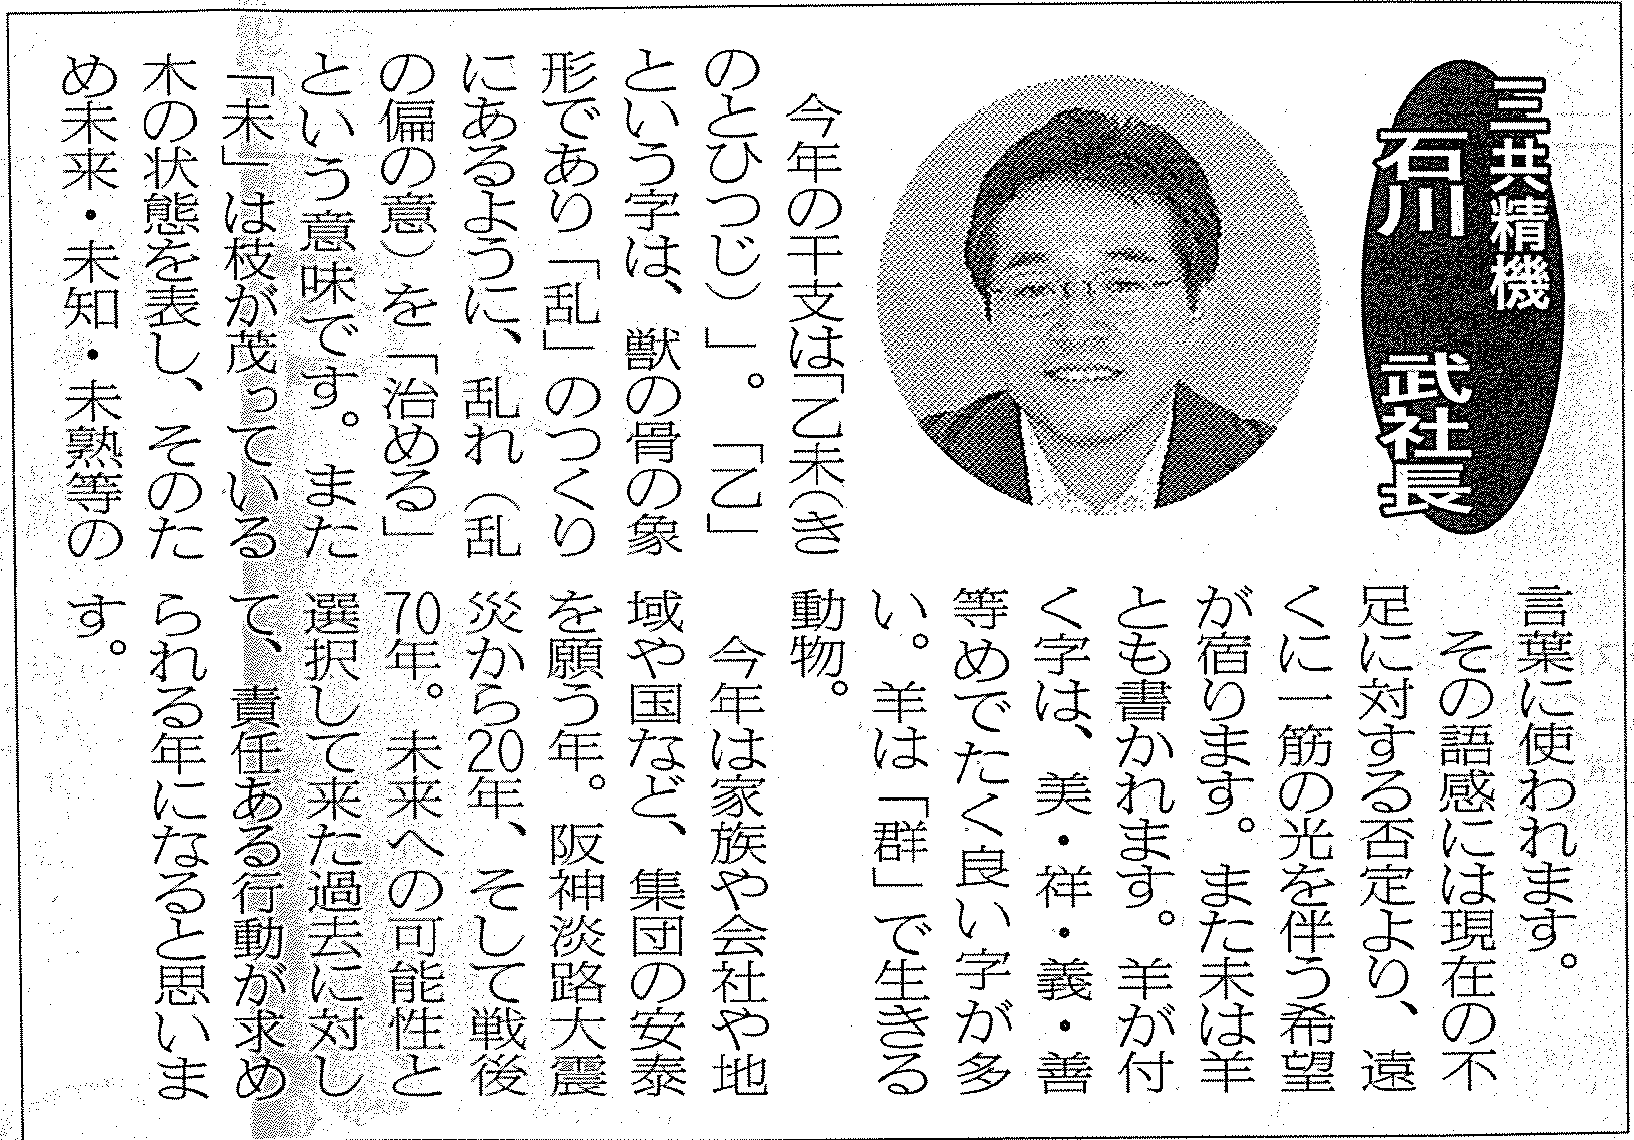 三共精機
石川　武社長
今年の干支は「乙未（き
のとひつじ）」。「乙」
という字は、獣の骨の象
形であり「乱」のつくり
にあるように、乱れ（乱
の偏の意）を「治める」
という意味です。また
「未」は枝が茂っている
木の状態を表し、そのた
め未来・未知・未熟等の
言葉に使われます。
その語感には現在の不
足に対する否定より、遠
くに一筋の光を伴う希望
が宿ります。また未は羊
とも書かれます。羊が付
く字は、美・祥・義・善
等めでたく良い字が多
い。羊は「群」で生きる
動物。
今年は家族や会社や地
域や国など、集団の安泰
を願う年。阪神淡路大震
災から20年、そして戦後
70年。未来への可能性と
選択して来た過去に対し
て、責任ある行動が求め
られる年になると思いま
す。